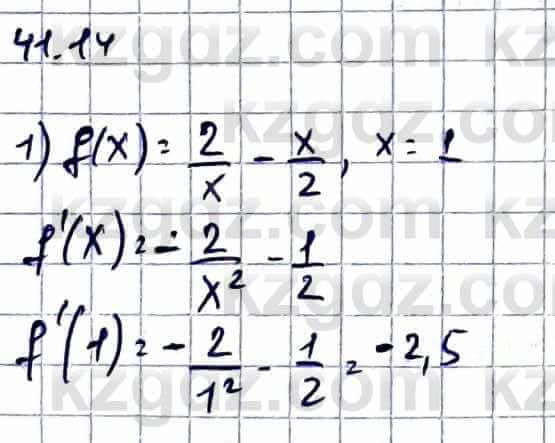 41.14
1) f(x) = 2/x - x/2, x = 1
f'(x) = - 2/x² - 1/2
f'(1) = - 2/1² - 1/2 = -2,5
kzgdz.com